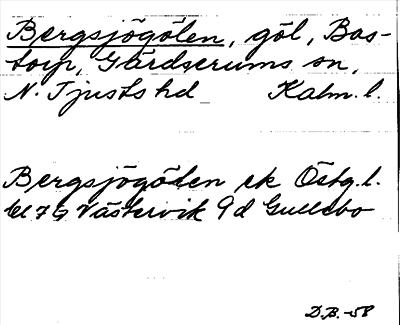 Bergsjögölen, göl, Bas-
torp, Gärdserums sn,
N. Tjusts hd Kalm. l.
Bergsjögölen ek Östg. l.
bl 7G Västervik 9d Gullebo
D.B.-58